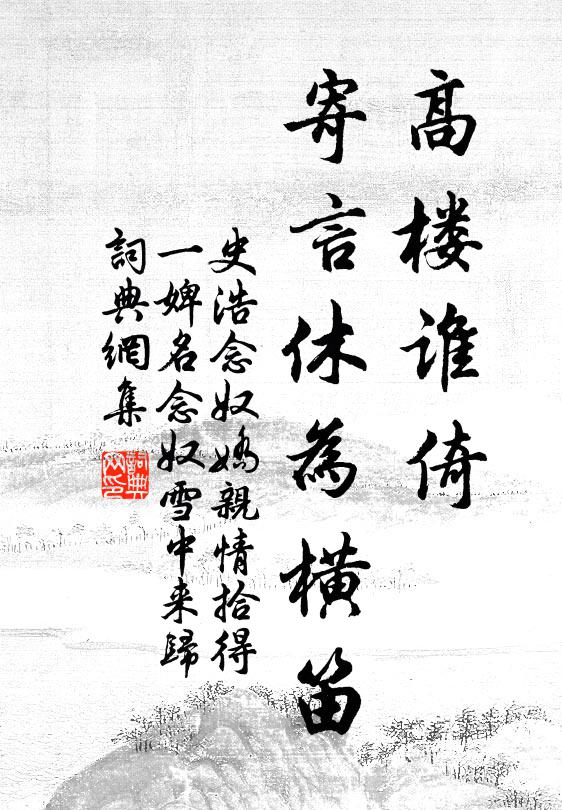 高楼谁倚
寄言休為橫笛
史浩念奴嬌親情拾得
一婢名念奴雪中来歸
詞典網集
詞典網印